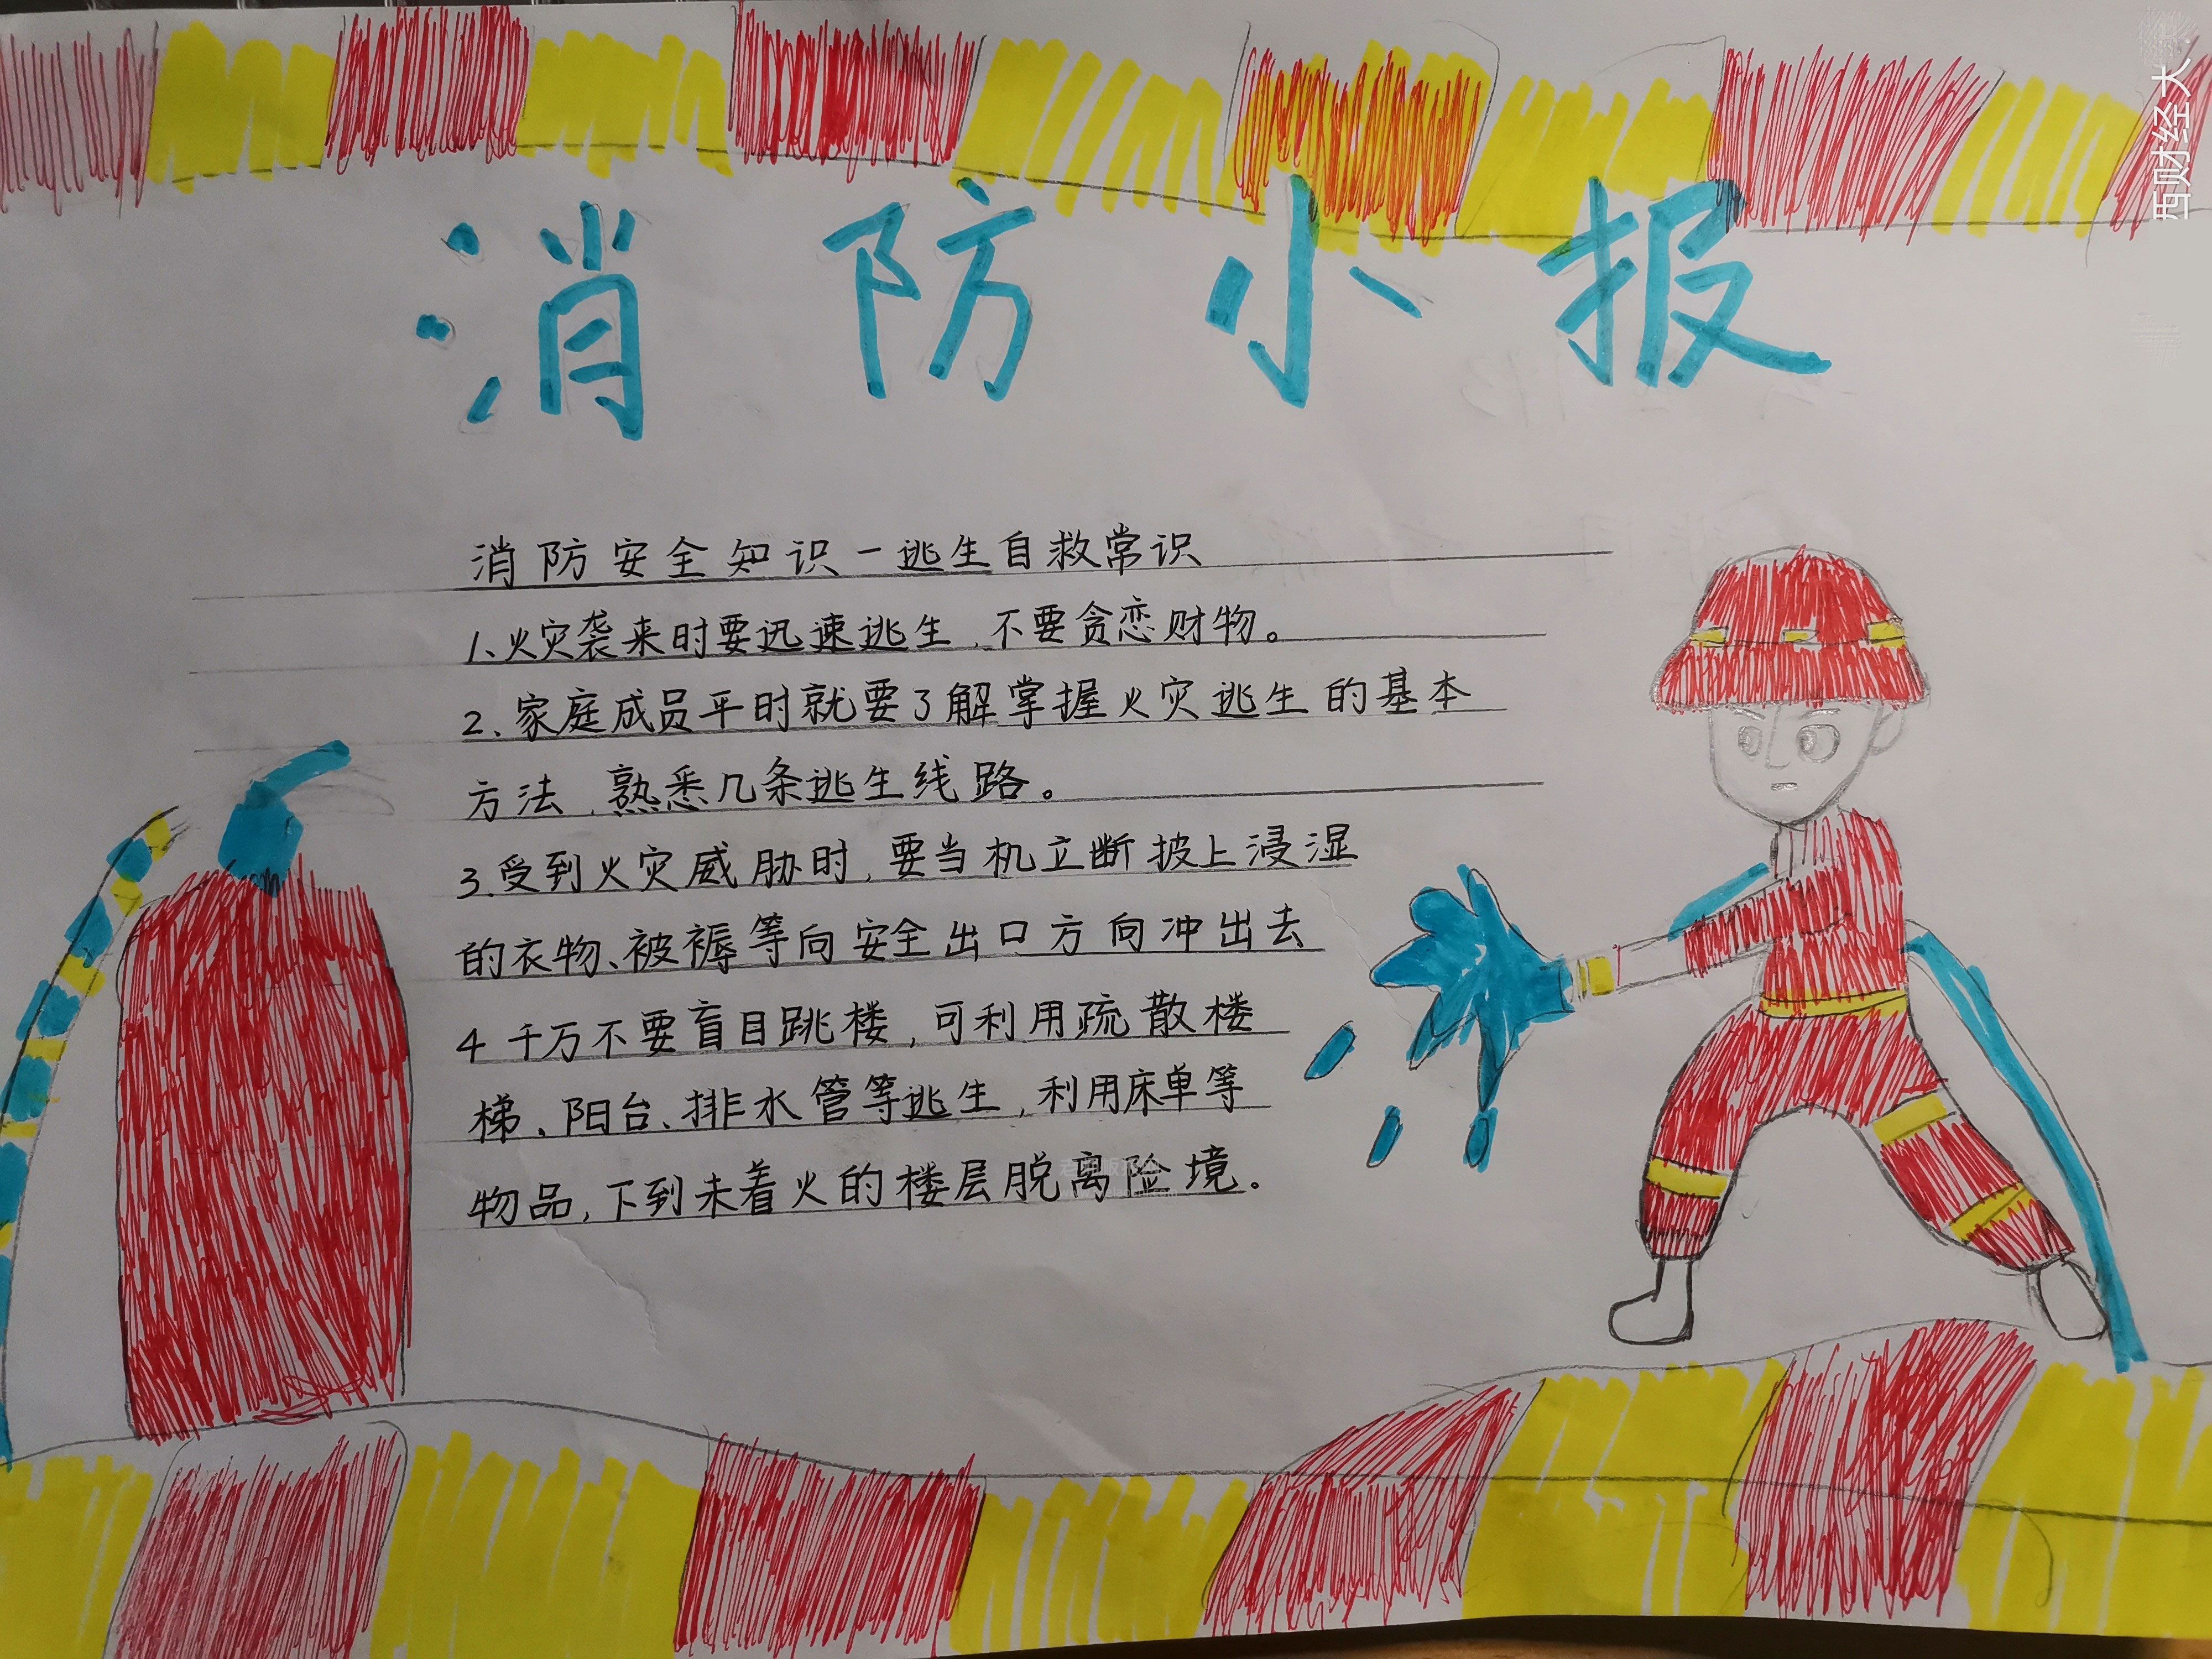 消防小报
消防安全知识一逃生自救常识
1、火灾袭来时要迅速逃生,不要贪恋财物。
2、家庭成员平时就要了解掌握火灾逃生的基本
方法,熟悉几条逃生线路。
3.受到火灾威胁时,要当机立断披上浸湿
的衣物、被褥等向安全出口方向冲出去
4千万不要盲目跳楼,可利用疏散楼
梯、阳台、排水管等逃生,利用床单等
物品,下到未着火的楼层脱离险境。
西财经大